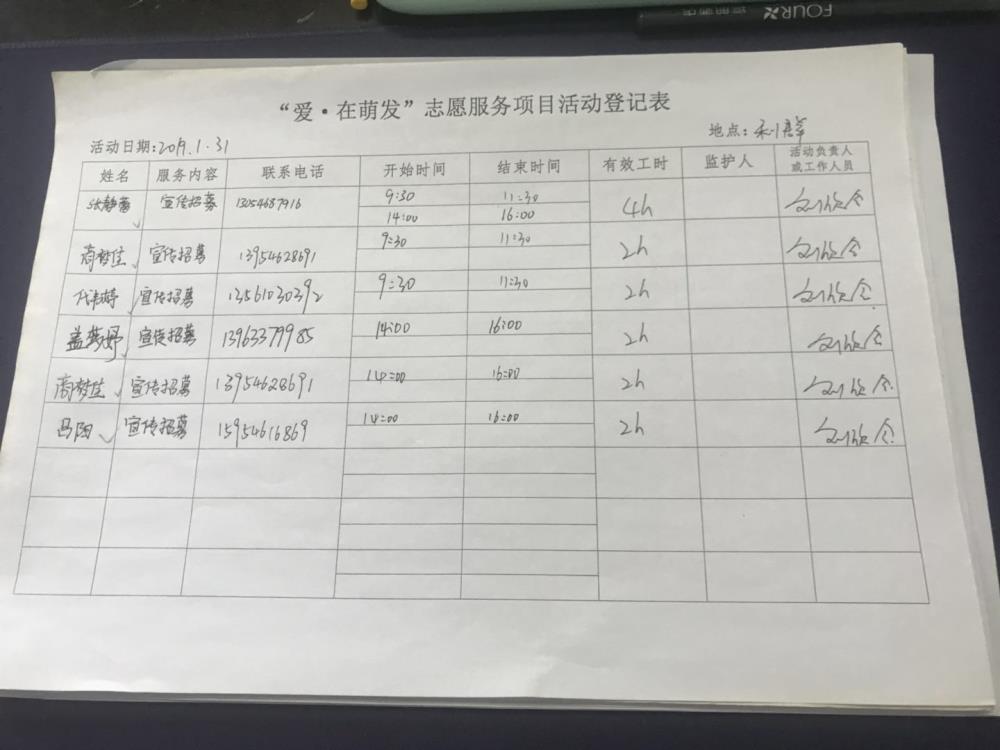 FOUR
“爱·在萌发”志愿服务项目活动登记表
活动日期:2019.1.31 地点:利群
姓名 服务内容 联系电话 开始时间 结束时间 有效工时 监护人 活动负责人或工作人员
宣传招募 13054687916 9:30 11:30 4h
14:00 16:00
商梦佳 宣传招募 13954628691 9:30 11:30 2h
宣传招募 13561030392 9:30 11:30 2h
盖梦妤 宣传招募 13963379985 14:00 16:00 2h
商梦佳 宣传招募 13954628691 14:00 16:00 2h
吕阳 宣传招募 15954616869 14:00 16:00 2h